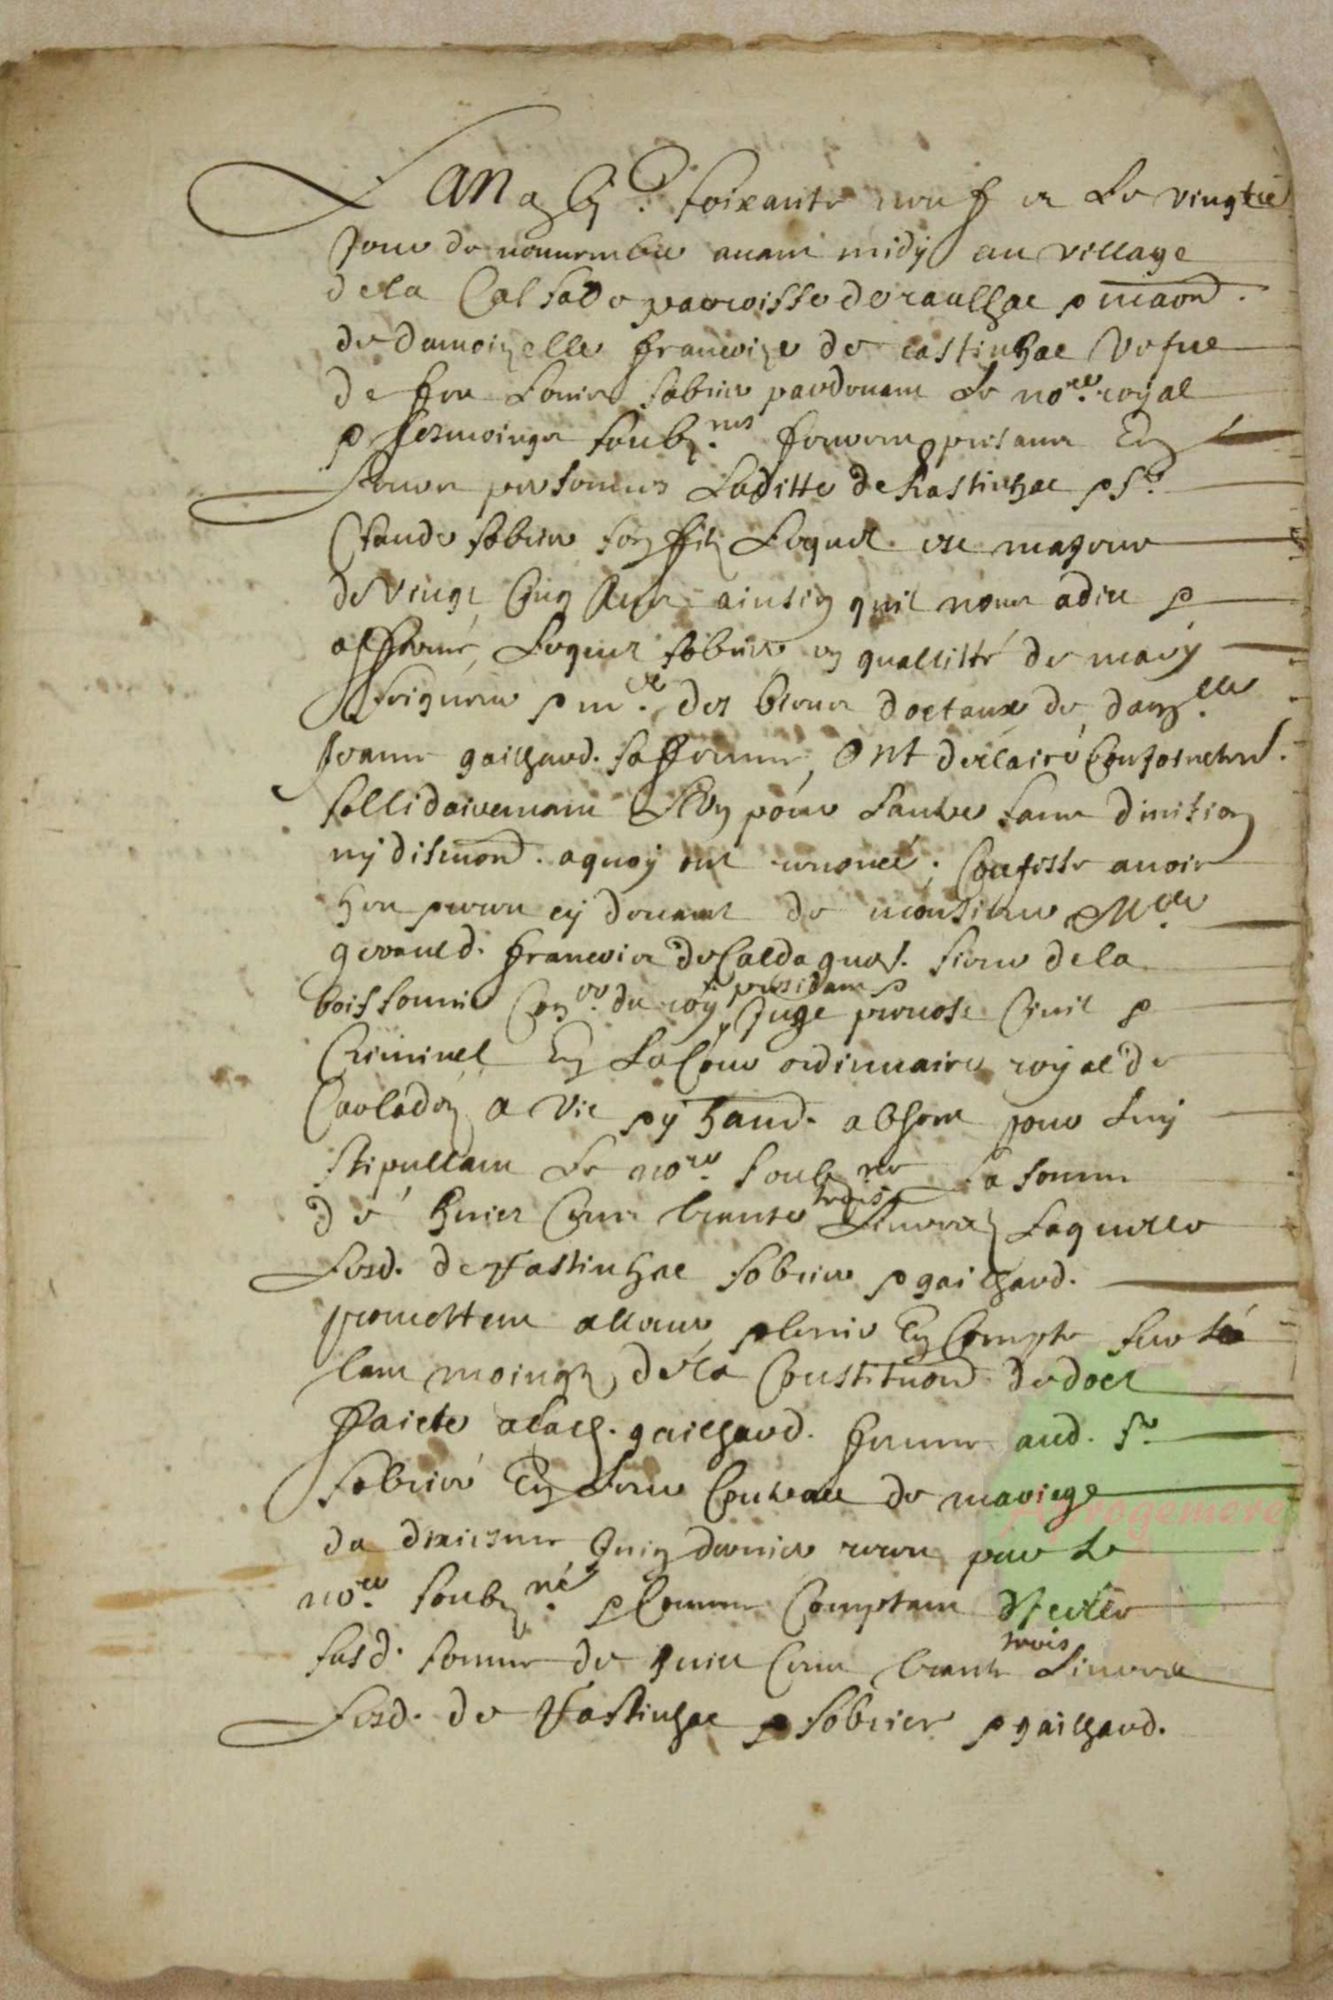 Lan soixante neuf et le vingtie
jour de novembre avant midy au village
de la Calsade parroisse de raulhac
de damoizelle francoize de rastinhac vefve
de feu Louis sobrier pardevant le no.re royal
p tesmoingz soubz.nes feurent presans En
leurs personnes Laditte de Rastinhac p s.r
Claude sobrier son filz Lequel est majeur
de vingt Cinq Ans ainsin quil nous a dict p
affirmé, Lequel sobrier en quallitté de mary
seigneur p m.e des biens doctaux de dam.lle
Jeanne gailhard. sa femme, Ont declairé Conjoinctem.t
sollidairemant lun pour lautre sans division
ny discution. a quoy ont renoncé; Confessé avoir
heu receu cy devant de monsieur M.re
geraud. francois de Caldaguès. sieur de la
boissonnie Con.er du roy presidant p Juge prevost Civil p
Criminel En la Cour ordinnaire royal de
Carladés a Vic absent pour luy
stipullant le no.re soubz.né la somme
de huict Cens trante trois Livres Laquelle
lesd. de rastinhac sobrier p gailhard.
promettent allouer p tenir En Compte sur
tant moingz de la Constitution de doct
faicte a lad. gailhard. femme aud. s.r
sobrier En leur Contract de mariage
du dixiesme Juin dernier receu par le
no.re soubz.né p Comme Comptant d'Icelle
susd. somme de huict Cens trante trois Livres
lesd. de rastinhac p sobrier p gailhard.